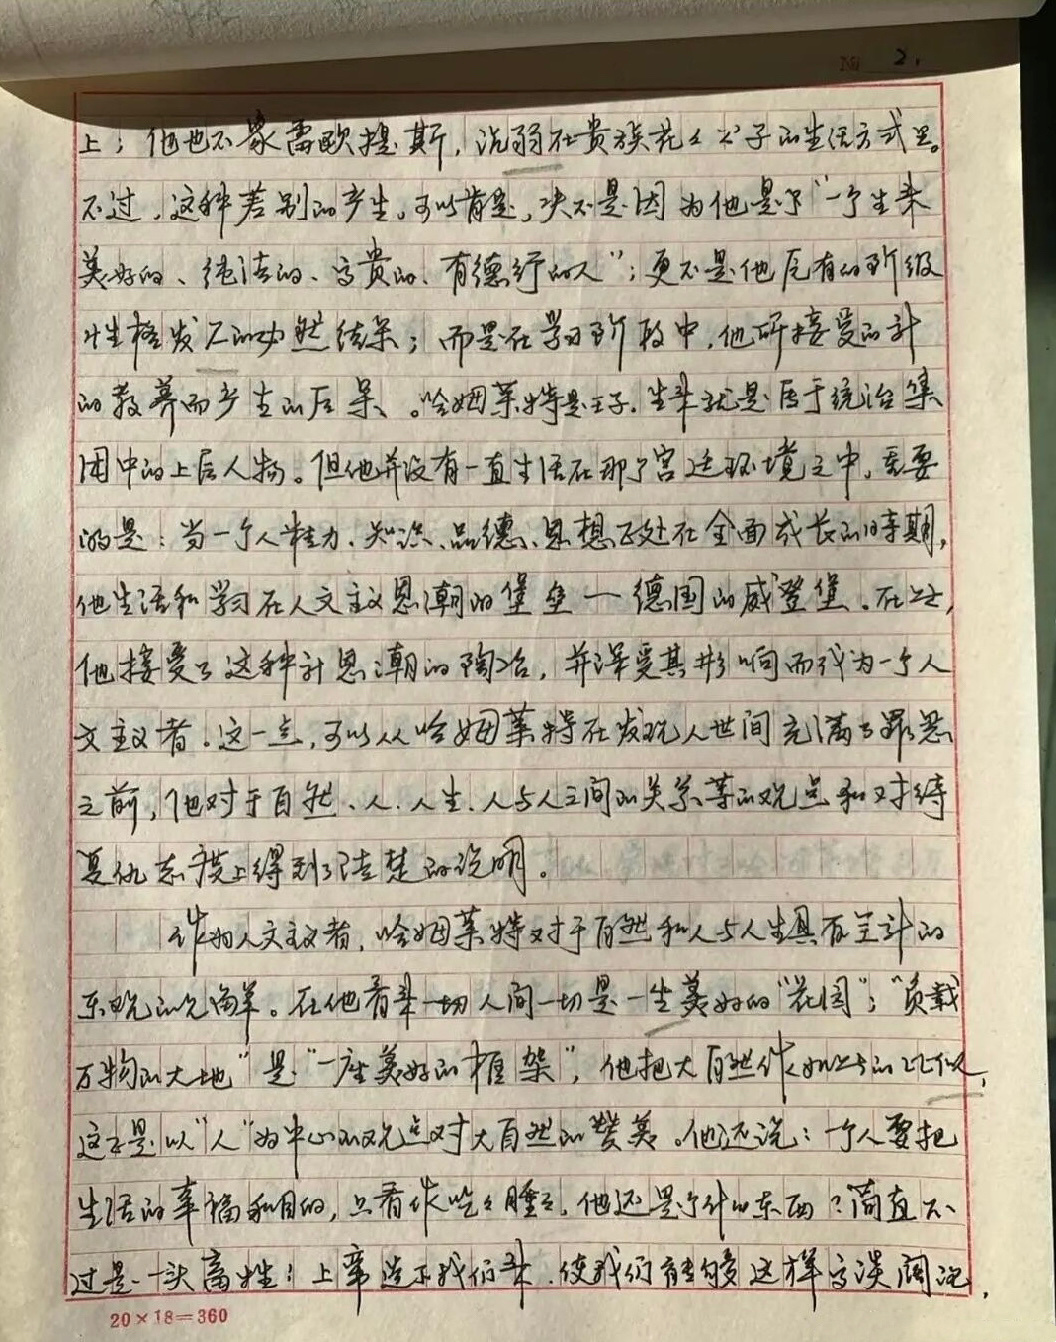 № 2.
上；他也不象雷欧提斯，沉溺在贵族花花公子的生活方式里。
不过，这种差别的产生，可以肯定，决不是因为他是个“一个生来
美好的、纯洁的、高贵的、有德行的人”；更不是他固有的阶级
性格发展的必然结果；而是在学习阶段中，他所接受的新
的教养而产生的后果。哈姆莱特是王子，生来就是属于统治集
团中的上层人物。但他并没有一直生活在那个宫廷环境之中，重要
的是：当一个人精力、知识、品德、思想正处在全面成长的时期，
他生活和学习在人文主义思潮的堡垒一德国的威登堡。在这，
他接受了这种新思潮的陶冶，并深受其影响而成为一个人
文主义者。这一点，可以从哈姆莱特在发现人世间充满了罪恶
之前，他对于自然、人、人生、人与人之间的关系等的观点和对待
复仇态度上得到了清楚的说明。
作为人文主义者，哈姆莱特对于自然和人与人生具有全新的
乐观的见解。在他看来一切人间一切是一座美好的“花园”；“负载
万物的大地”是“一座美好的框架”，他把大自然作如此的比似，
这正是以“人”为中心的观点对大自然的赞美。他还说：一个人要把
生活的幸福和目的，只看作吃吃睡睡，他还是个什么东西？简直不
过是一头畜牲！上帝造下我们来，使我们能够这样高谈阔论，
20×18=360